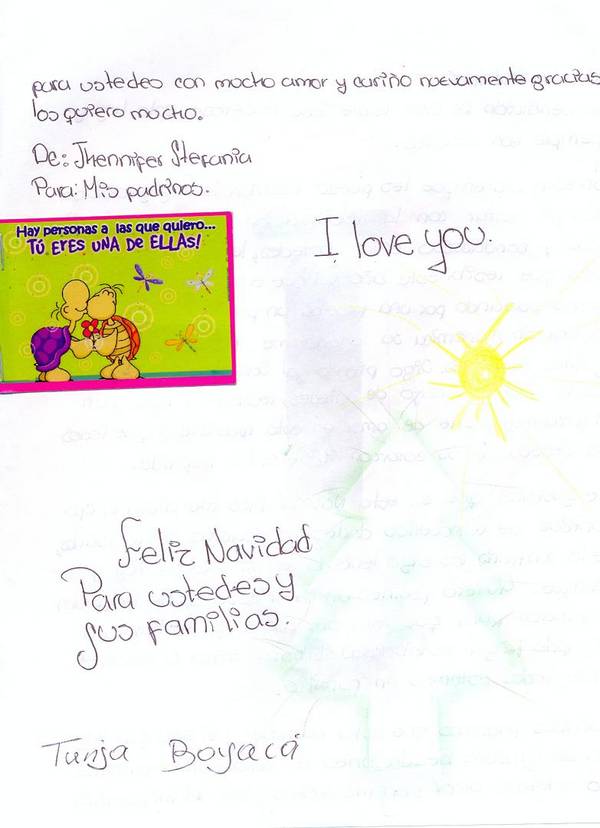 para ustedes con mucho amor y cariño nuevamente gracias
los quiero mucho.
De: Jhennifer Stefania
Para: Mis padrinos.
Hay personas a las que quiero...
TÚ ERES UNA DE ELLAS!
I love you.
Feliz Navidad
Para ustedes y
sus familias.
Tunja Boyacá